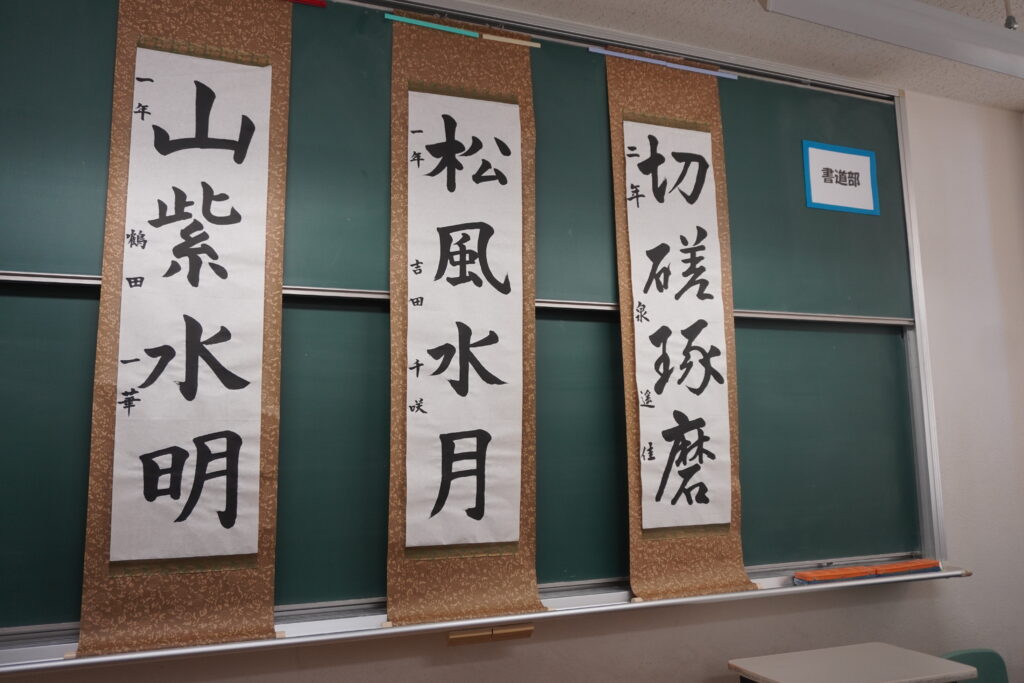 書道部
切磋琢磨
二年 泉 遥佳
松風水月
一年 吉田 千咲
山紫水明
一年 鶴田 一華